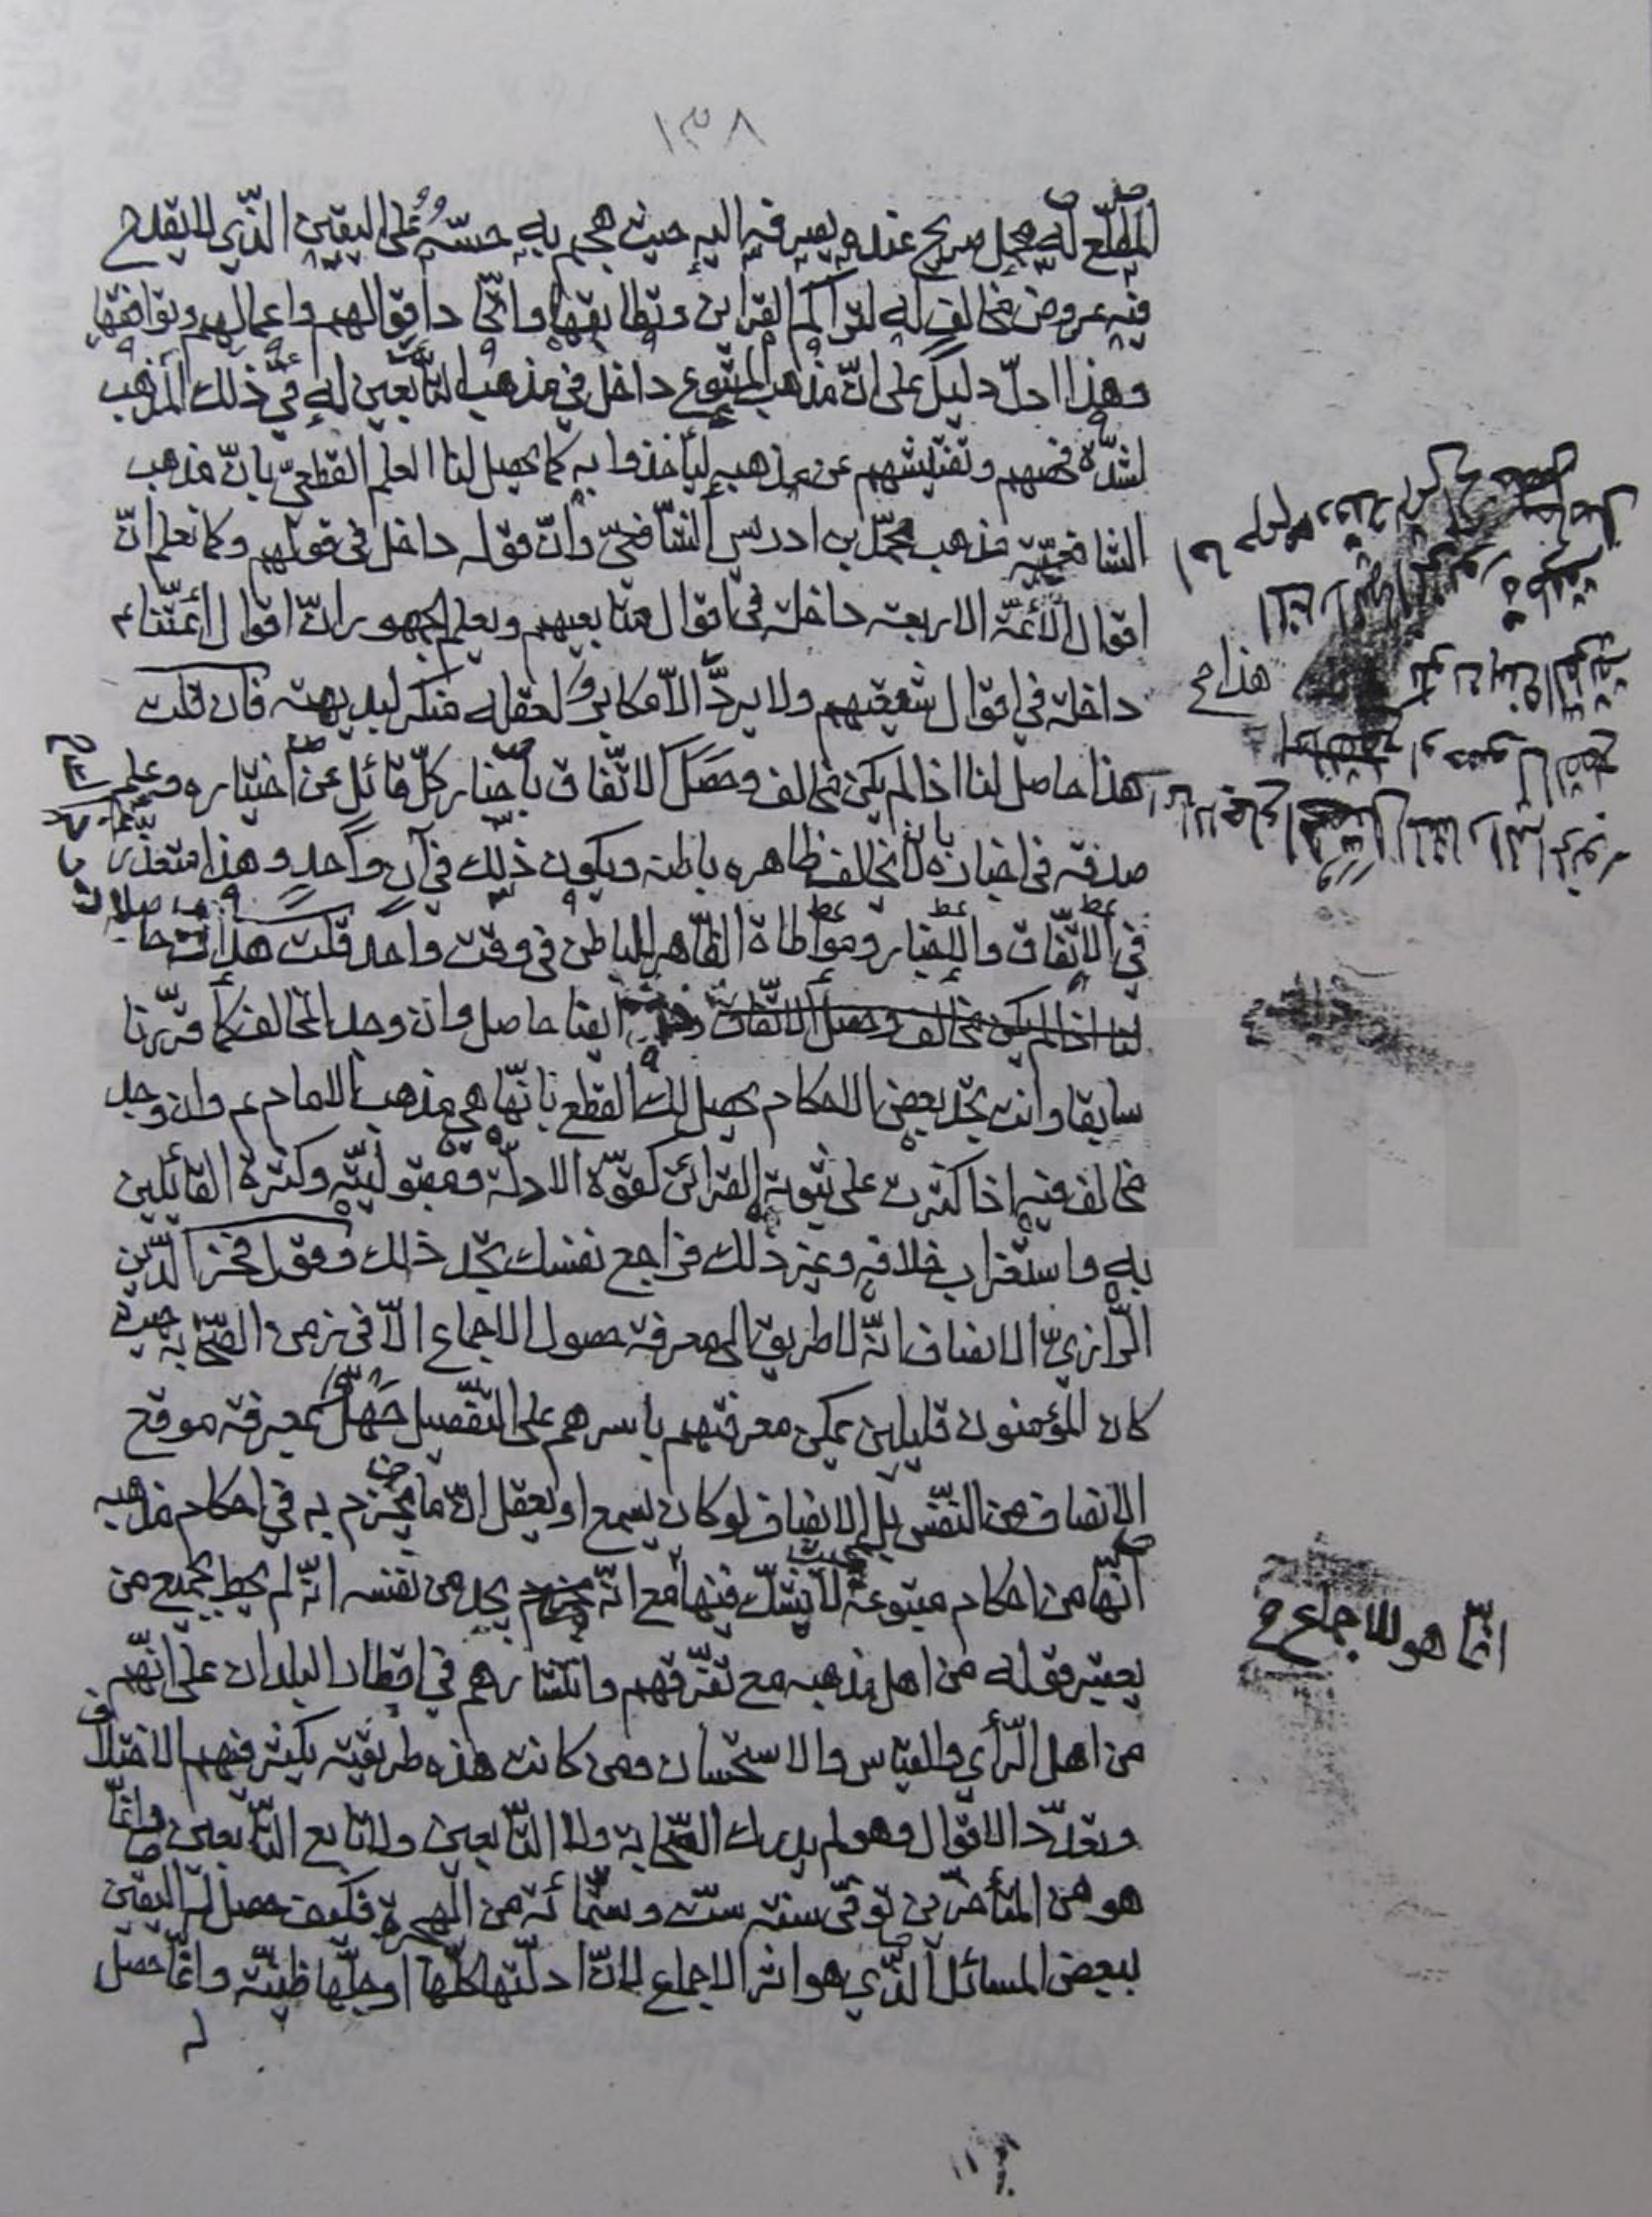 ١٣٨
المطّلع له محل صريح عنده يصرفه اليه حيث هجم به حسّه على اليقين الذّي لا يقدح
فيه عروض مخالف له لتراكم القراين وتطابقها واتّحاد اقوالهم واعمالهم وتوافقها
وهذا ادلّ دليل على انّ مذهب المتبوع داخل في مذهب التّابعين له في ذلك المذهب
لشدّة فحصهم وتفتيشهم عن مذهبه ليأخذوا به كما يحصل لنا العلم القطعيّ بانّ مذهب
الشافعيّة مذهب محمّد بن ادريس الشّافعيّ وانّ قوله داخل في قولهم وكما نعلم انّ
اقوال الأئمّة الاربعة داخلة في اقوال متابعيهم ويعلم الجمهور انّ اقوال أئمّتنا ع
داخلة في اقوال شيعتهم ولا يردّ الّا مكابر لعقله منكر لبديهته فان قلت
هذا حاصل لنا اذا لم يكن مخالف وحصل الاتّفاق باخبار كلّ قائل عن اختياره وعلم
صدقه في اخباره بانه لا يخالف ظاهره باطنه ويكون ذلك في آن واحد وهذا متعذّر
في الاتّفاق والاخبار ومواطاة الظّاهر للباطن في وقت واحد قلت هذا حاصل
لنا اذا لم يكن مخالف وحصل الاتّفاق ايضا حاصل وان وجد المخالف كما قرّرنا
سابقا وانت تجد بعض الاحكام يحصل لك القطع بانّها هي مذهب الامام ع وان وجد
مخالف فيه اذا كثرت على ثبوته القرائن كقوّة الادلّة ومقبوليّته وكثرة القائلين
به واستغراب خلافه وغير ذلك فراجع نفسك تجد ذلك وقول فخر الدّين
الرّازيّ الانصاف انّه لا طريق الى معرفة حصول الاجماع الّا في زمن الصّحابة حيث
كان المؤمنون قليلين يمكن معرفتهم باسرهم على التّفصيل جهل بمعرفة موقع
الانصاف من النّفس بل الانصاف لو كان يسمع او يعقل انّ ما يجزم به في احكام مذهبه
انّها من احكام متبوعه لا يشكّ فيها مع انّه يجد من نفسه انّه لم يحط بجميع من
يعتبر قوله من اهل مذهبه مع تفرّقهم وانتشارهم في اقطار البلدان على انّهم
من اهل الرّأي والقياس والاستحسان ومن كانت هذه طريقته يكثر فيهم الاختلاف
وتعدّد الاقوال وهو لم يدرك الصّحابة ولا التّابعين ولا تابع التّابعين وانّما
هو من المتأخّرين توفّي سنة ستّ وستّمائة من الهجرة فكيف حصل له اليقين
ببعض المسائل الذّي هو اثر الاجماع لانّ ادلّتها كلّها او جلّها ظنّيّة وانّما حصل
له
هذا م‍ح
انّما هو للاجماع